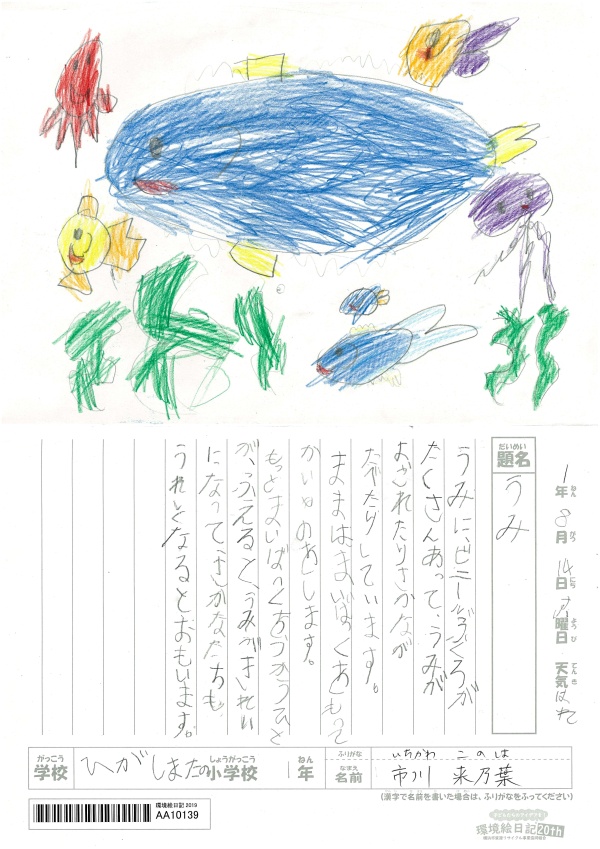 1年ねん 8月がつ 14日にち 曜日ようび 天気てんき はれ
題名だいめい うみ
うみに、ビニールぶくろが
たくさんあって、うみが
よごれたりさかなが
たべたりしています。
ままはまいばくおもって
かいものおします。
もっとまいばっくをつかうひと
が、ふえると、うみがきれい
になって、さかなたちも
なるとおもいます。
学校がっこう ひがしまたの小学校しょうがっこう 1年ねん
ふりがな いちかわ このは
名前なまえ 市川 来乃葉
(漢字で名前を書いた場合は、ふりがなをふってください)
環境絵日記 2019
AA10139
環境絵日記20th